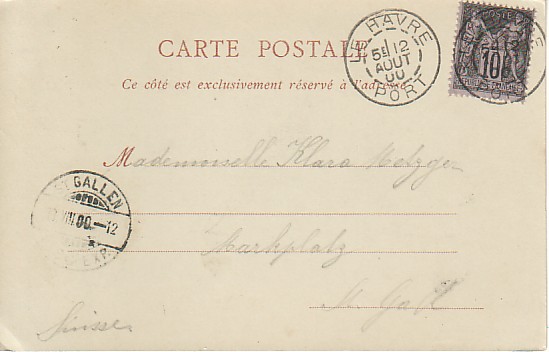 CARTE POSTALE
Ce côté est exclusivement réservé à l'adresse
LE HAVRE
5E 12
AOUT
00
PORT
10
Mademoiselle Klara Metzger
ST GALLEN
VIII.00.-12
EXP.
Markplatz
St. Gall
Suisse